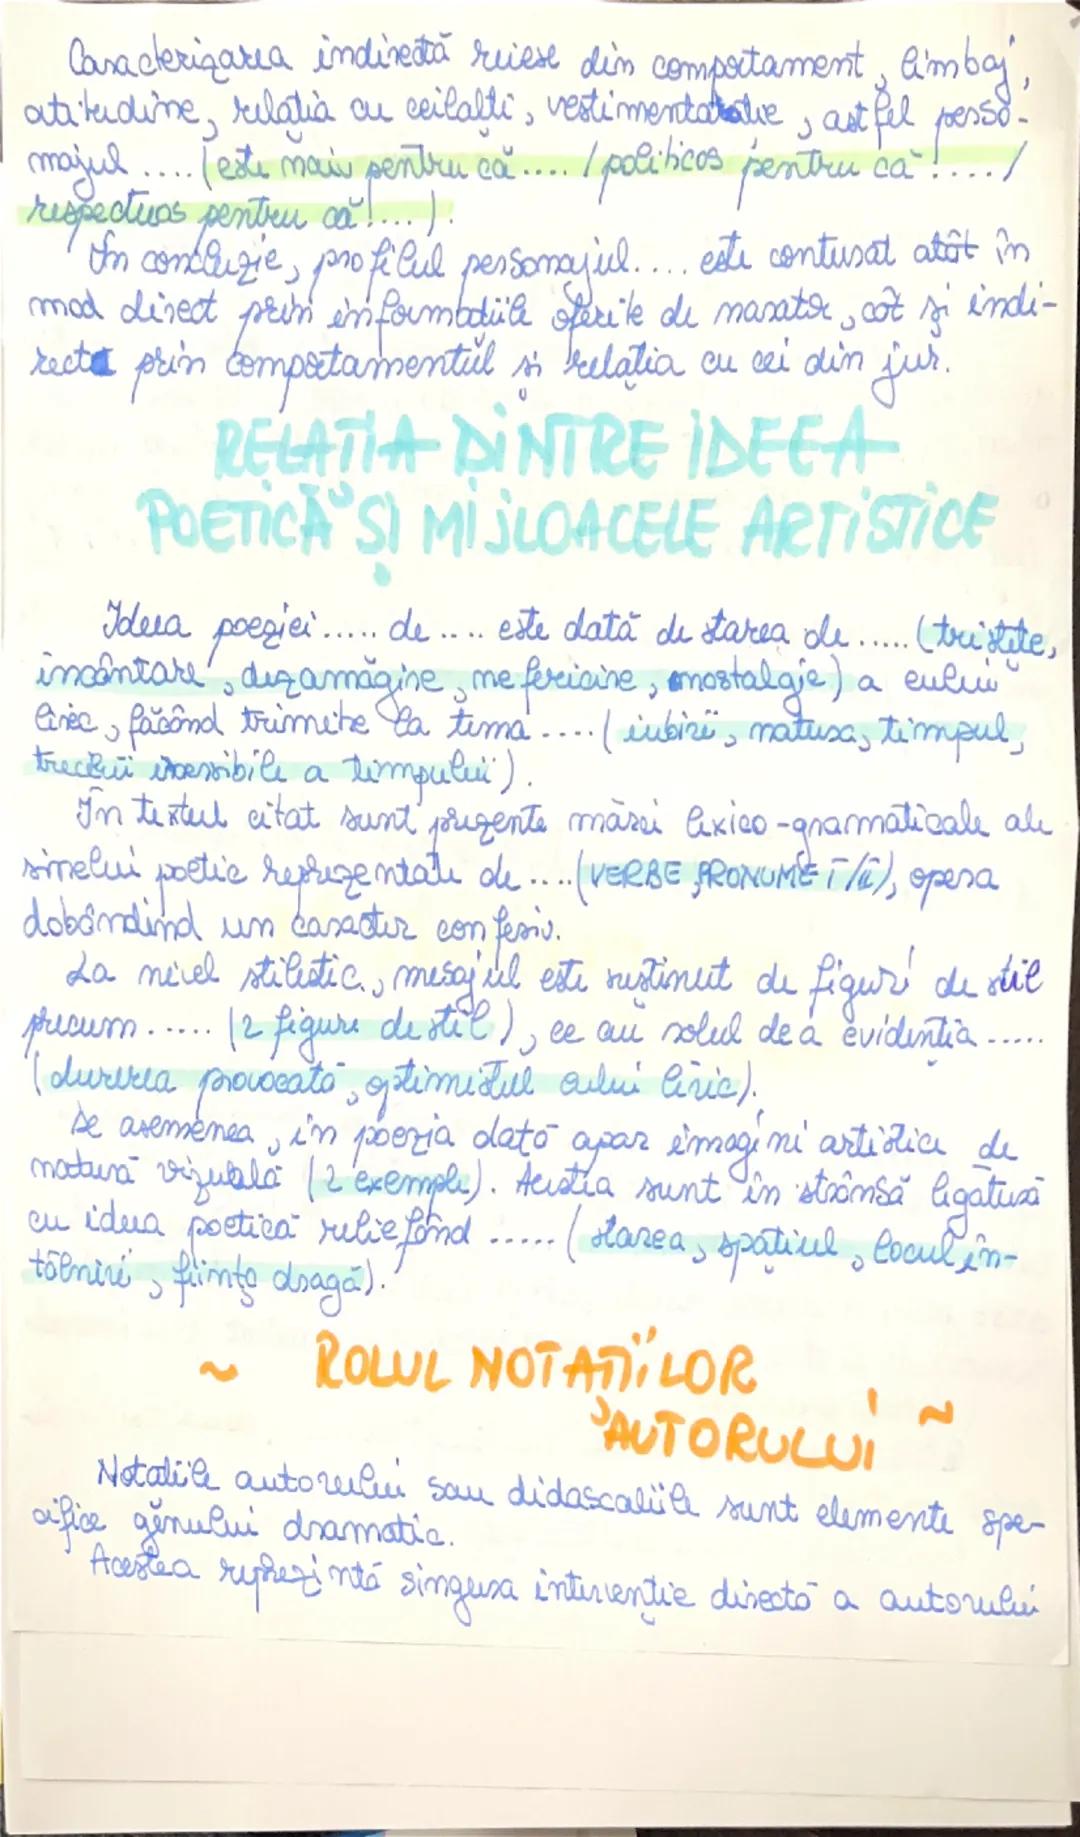 Caracterizarea indirectă reiese din comportament, limbaj,
atitudine, relația cu ceilalți, vestimentatatie, astfel perso-
najul .... (este naiv pentru că .... / politicos pentru că! .... /
respectuos pentru că! ... ).
În concluzie, profilul personajul .... este conturat atât în
mod direct prin informațiile oferite de narator, cât și indi-
rect prin comportamentul și relatia cu cei din jur.
RELAȚIA DINTRE IDEEA
POETICĂ ȘI MIJLOACELE ARTISTICE
Ideea poeziei ..... de .... este dată de starea de ..... (tristețe,
incântare, dezamăgire, nefericire, nostalgie) a eului
liric, făcând trimitere la tema .... (iubirii, natura, timpul,
trecerii ireversibile a timpului).
În textul citat sunt prezente mărci lexico-gramaticale ale
sinelui poetic reprezentate de .... (VERBE, PRONUME I/II), opera
dobândind un caracter confesiv.
La nivel stilistic, mesajul este susținut de figuri de stil
precum ..... (2 figuri de stil), ce au rolul de a evidenția .....
(durerea provocată, optimistul eului liric).
De asemenea, în poezia dată apar imagini artistice de
natură vizuală (2 exemple). Acestia sunt în strânsă legătură
cu ideea poetică reliefând ..... (starea, spațiul, locul în-
tâlnirii, ființa dragă).
~ ROLUL NOTAȚIILOR
AUTORULUI ~
Notatiile autorului sau didascaliile sunt elemente spe-
cifice genului dramatic.
Acestea reprezintă singura intervenție directă a autorului